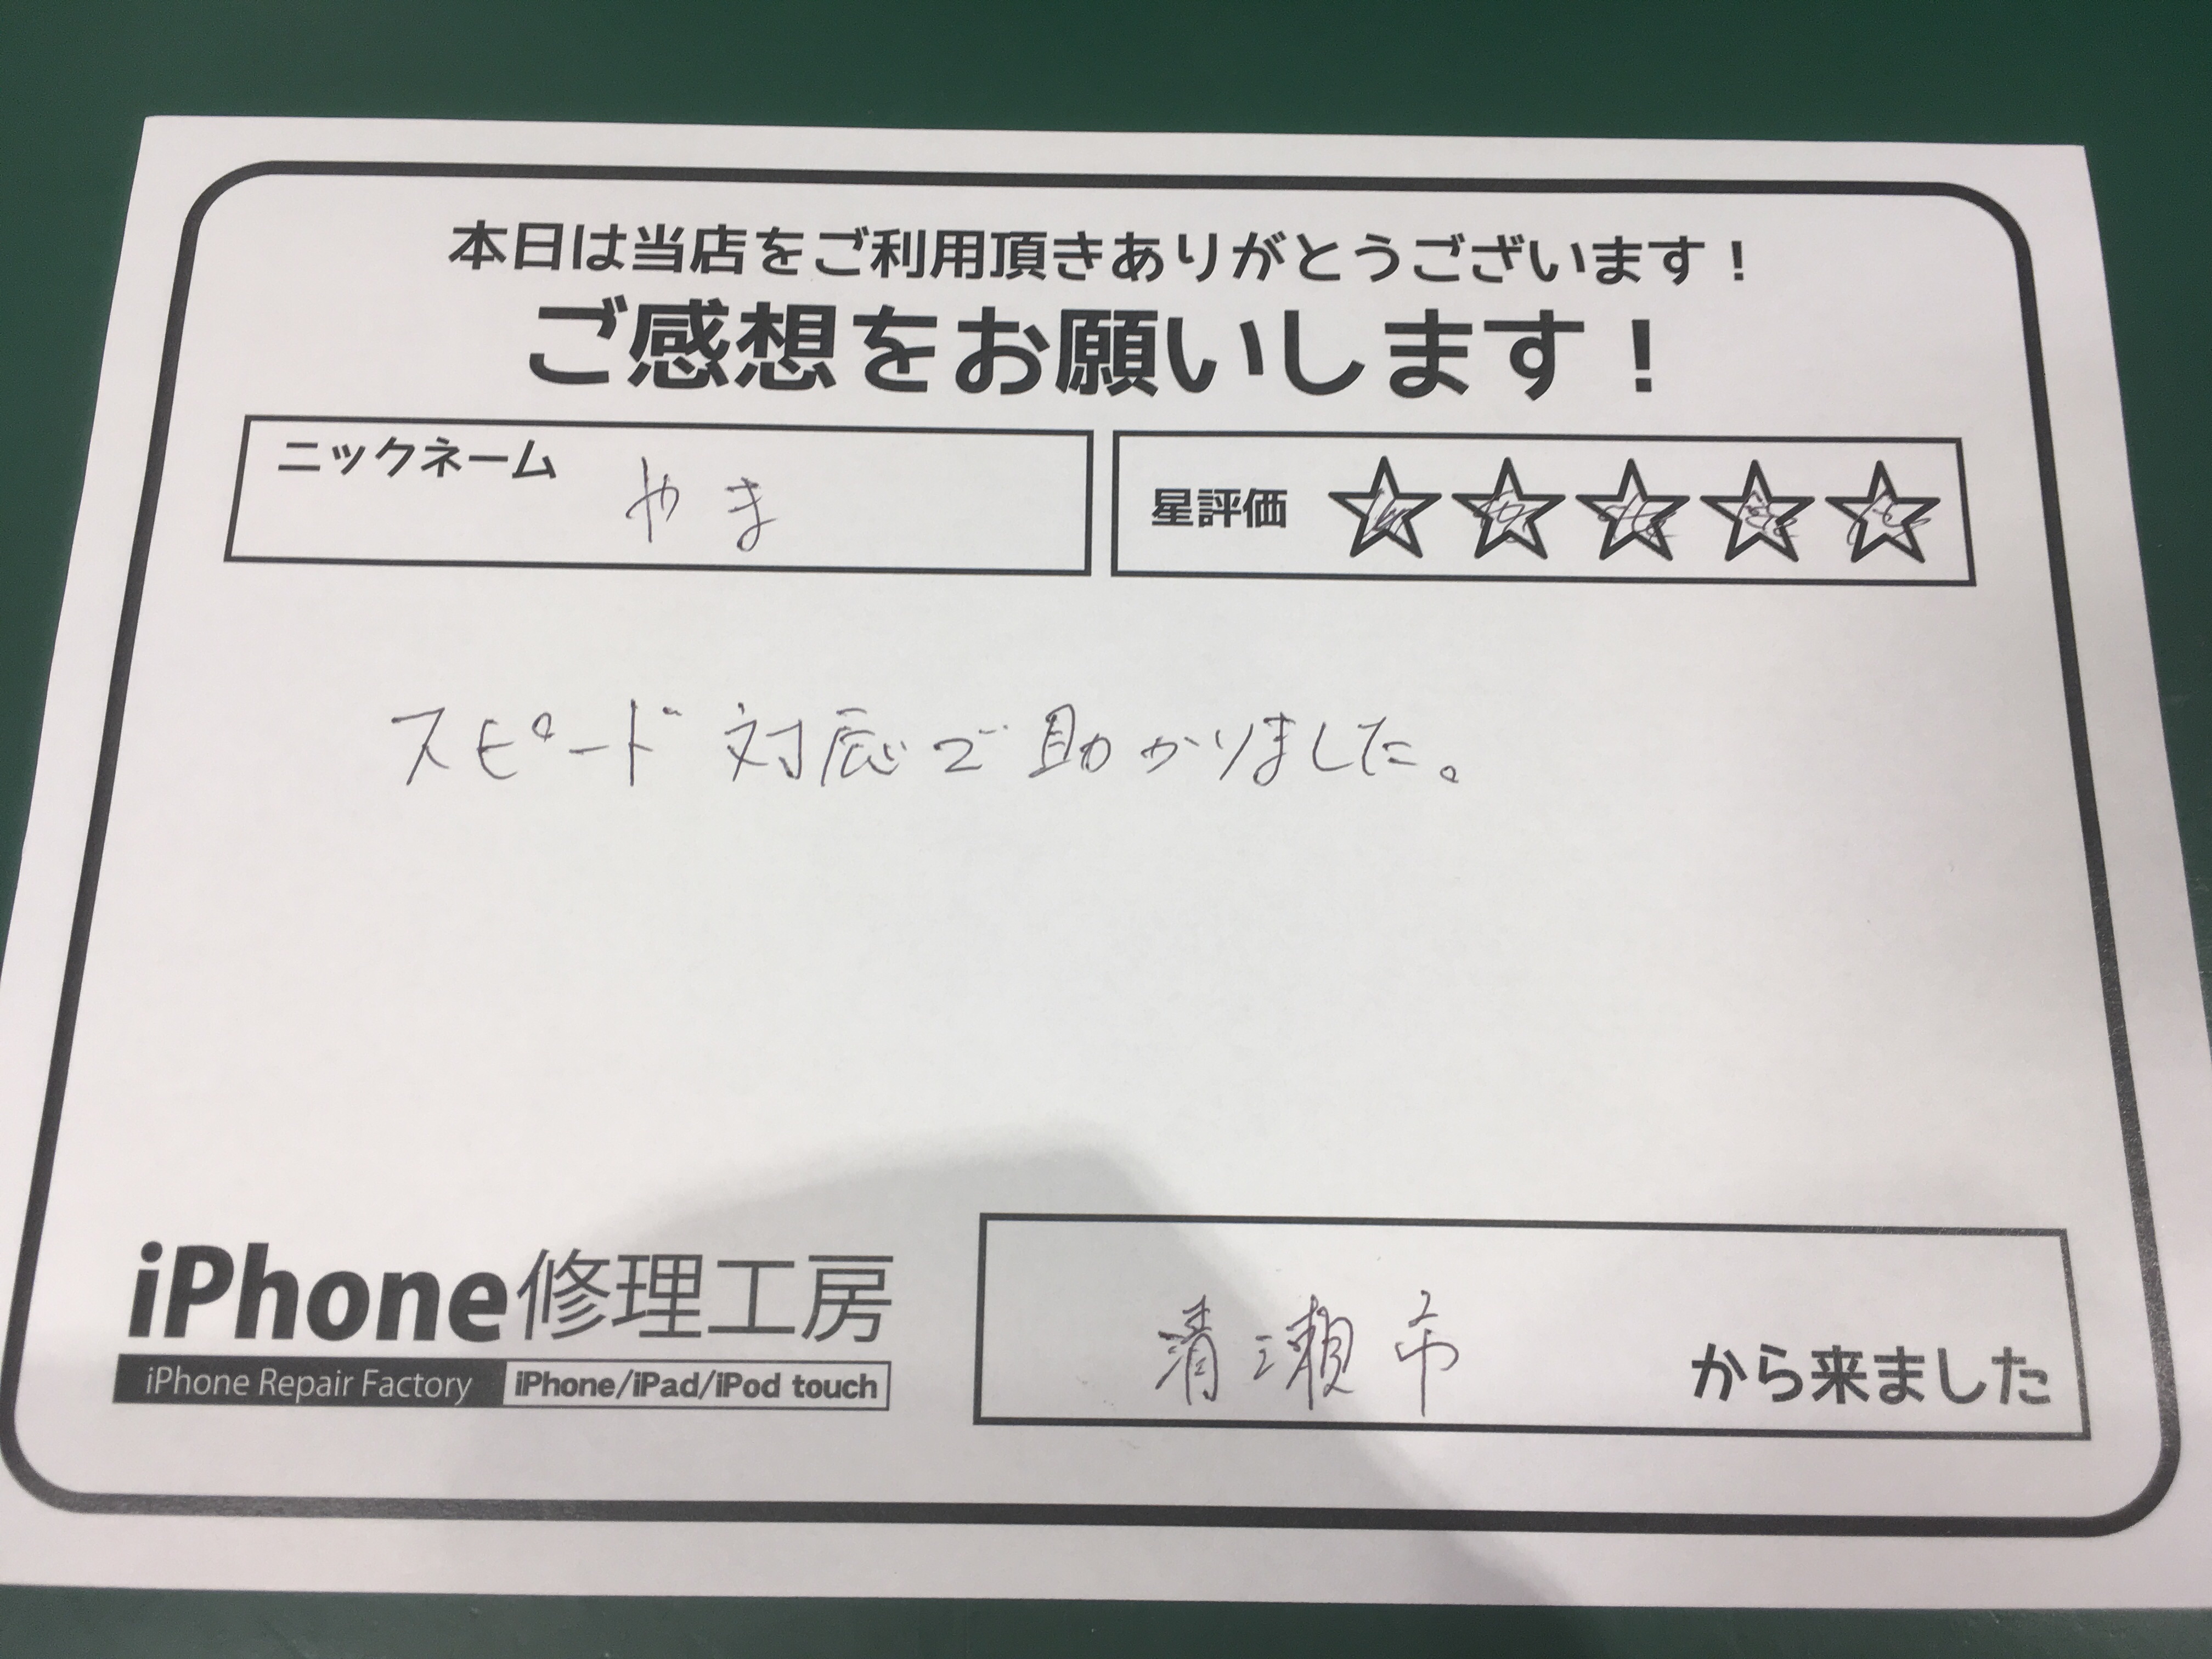 本日は当店をご利用頂きありがとうございます！
ご感想をお願いします！
ニックネーム やま
星評価 ☆☆☆☆☆
スピード対応で助かりました。
iPhone修理工房
iPhone Repair Factory iPhone/iPad/iPod touch
清瀬市 から来ました